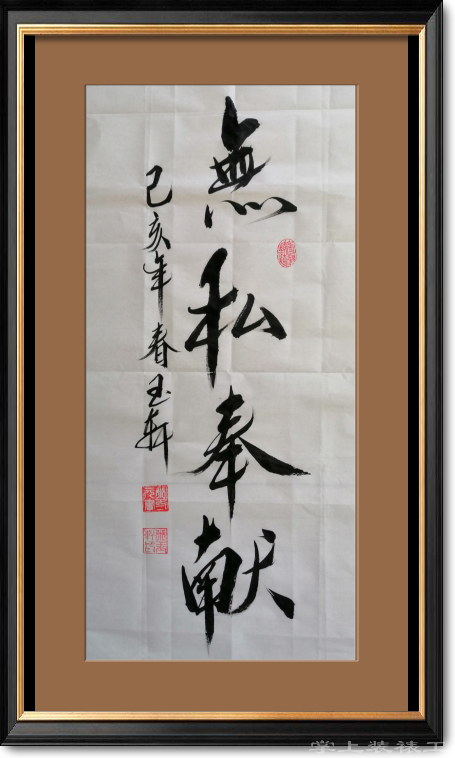 無私奉献
己亥年春玉軒
掌上装裱